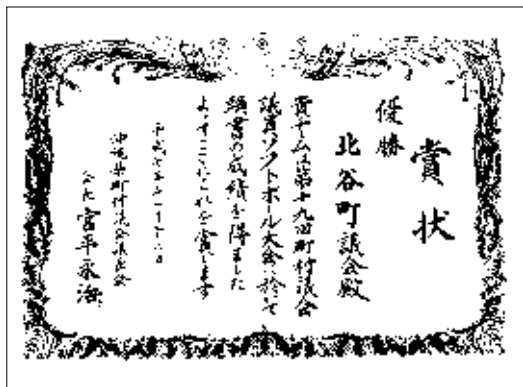 賞状
優勝
北谷町議会殿
貴チームは第十九回町村議会
議員ソフトボール大会に於て
頭書の成績を得ました
よってここにこれを賞します
平成七年十一月十六日
沖縄県町村議会議長会
会長 宮平永治